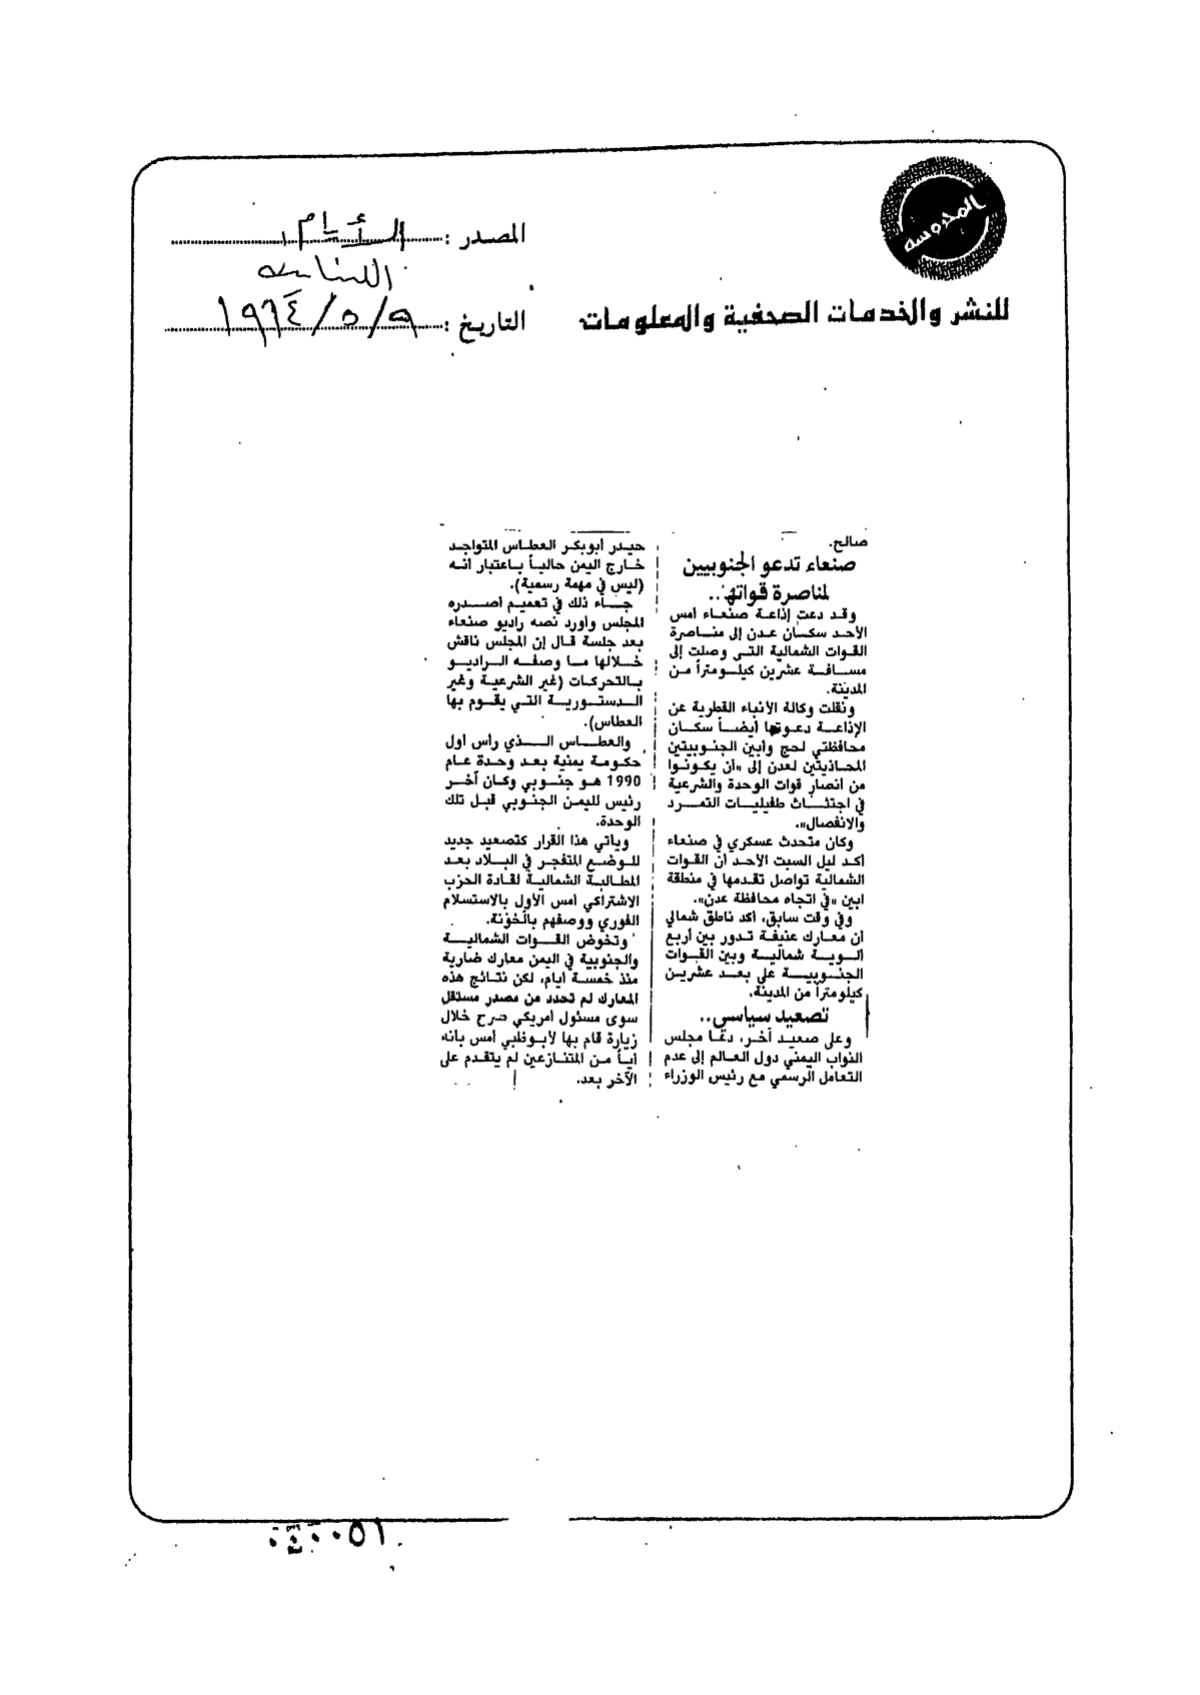 المحروسة
المصدر : الأيام
التاريخ : ٩/٥/١٩٩٤
للنشر والخدمات الصحفية والمعلومات
صالح.
صنعاء تدعو الجنوبيين
لمناصرة قواتها..
وقد دعت إذاعة صنعاء أمس
الأحد سكان عدن إلى مناصرة
القوات الشمالية التي وصلت إلى
مسافة عشرين كيلومتراً من
المدينة.
ونقلت وكالة الأنباء القطرية عن
الإذاعة دعوتها أيضاً سكان
محافظتي لحج وأبين الجنوبيتين
المحاذيتين لعدن إلى «أن يكونوا
من أنصار قوات الوحدة والشرعية
في اجتثاث طفيليات التمرد
والانفصال».
وكان متحدث عسكري في صنعاء
أكد ليل السبت الأحد أن القوات
الشمالية تواصل تقدمها في منطقة
ابين «في اتجاه محافظة عدن».
وفي وقت سابق، أكد ناطق شمالي
أن معارك عنيفة تدور بين أربع
ألوية شمالية وبين القوات
الجنوبية على بعد عشرين
كيلومتراً من المدينة.
تصعيد سياسي..
وعلى صعيد آخر، دعا مجلس
النواب اليمني دول العالم إلى عدم
التعامل الرسمي مع رئيس الوزراء
حيدر أبوبكر العطاس المتواجد
خارج اليمن حالياً باعتبار انه
(ليس في مهمة رسمية).
جاء ذلك في تعميم أصدره
المجلس وأورد نصه راديو صنعاء
بعد جلسة قال إن المجلس ناقش
خلالها ما وصفه الراديو
بالتحركات (غير الشرعية وغير
الدستورية التي يقوم بها
العطاس).
والعطاس الذي رأس أول
حكومة يمنية بعد وحدة عام
1990 هو جنوبي وكان آخر
رئيس لليمن الجنوبي قبل تلك
الوحدة.
ويأتي هذا القرار كتصعيد جديد
للوضع المتفجر في البلاد بعد
المطالبة الشمالية لقادة الحزب
الاشتراكي أمس الأول بالاستسلام
الفوري ووصفهم بالخونة.
وتخوض القوات الشمالية
والجنوبية في اليمن معارك ضارية
منذ خمسة أيام، لكن نتائج هذه
المعارك لم تحدد من مصدر مستقل
سوى مسئول أمريكي صرح خلال
زيارة قام بها لأبوظبي أمس بأنه
أياً من المتنازعين لم يتقدم على
الآخر بعد.